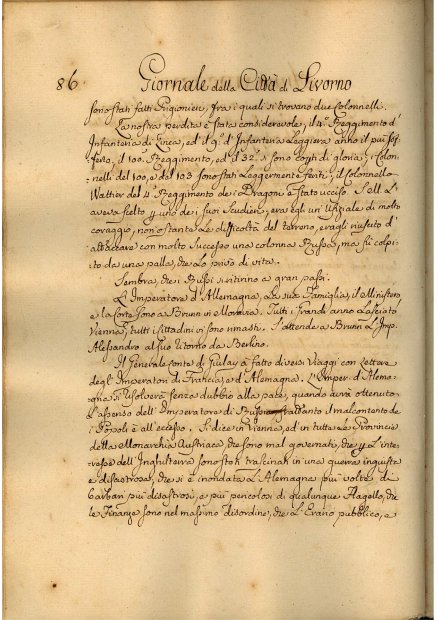 86. Giornale della Città di Livorno
sono stati fatti Prigionieri, fra i quali si trovano due Colonnelli.
La nostra perdita è stata considerevole, il 4.° Reggimento d'
Infanteria di Linea, ed il 9.° d'Infanteria Leggiera anno il più sof-
ferto, il 100. Reggimento, ed il 32.° si sono coperti di gloria; i Colon-
nelli del 100, e del 103 sono stati Leggermente feriti, il Colonnello
Wattier del 4.° Reggimento dei Dragoni è stato ucciso. S. M. L'
aveva scelto p uno dei suoi Scudieri, era egli un'Uffiziale di molto
coraggio, non ostante Le difficoltà del terreno, eragli riuscito d'
attaccare con molto Successo una colonna Russa, ma fù colpi-
to da una palla, che Lo privò di vita.
Sembra, che i Russi si ritirino a gran passi.
L'Imperatore d'Allemagna, La sua Famiglia, il Ministero
e la Corte sono a Brunn in Moravia. Tutti i Grandi anno Lasciato
Vienna, tutti i Cittadini vi sono rimasti. S'attende a Brunn L'Imp.
Alessandro al suo ritorno da Berlino.
Il Generale Conte di Giulay à fatto diversi Viaggi con Lettere
degl'Imperatori di Francia, e d'Alemagna. L'Imper. d'Alema-
gna si risolverà senza dubbio alla pace, quando avrà ottenuto
L'assenso dell'Imperatore di Russia frattanto il malcontento de
i Popoli è all'eccesso. Si dice in Vienna, ed in tutte Le Provincie
della Monarchia Austriaca che sono mal governati, che p L'inte-
resse dell'Inghilterra sono stati trascinati in una guerra ingiusta
e disastrosa, che si è inondata L'Alemagna più volte di
barbari più disastrosi, e più pericolosi di qualunque flagello, che
le Finanze sono nel massimo disordine, che L'Erario pubblico, e